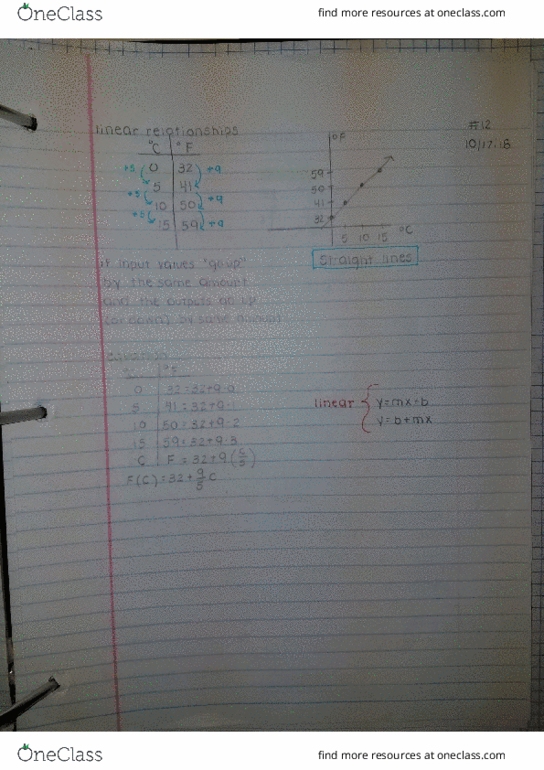 OneClass
find more resources at oneclass.com
#12
10/17/18
linear relationships
°C °F
+5 0 32 +9
+5 5 41 +9
+5 10 50 +9
15 59
°F
59
50
41
32
5 10 15 °C
Straight lines
if input values "go up"
by the same amount
and the outputs go up
(or down) by same amount
equation
°C °F
0 32=32+9·0
5 41=32+9·1
10 50=32+9·2
15 59=32+9·3
C F=32+9(C/5)
F(C)=32+9/5C
linear { y=mx+b
y=b+mx
OneClass
find more resources at oneclass.com